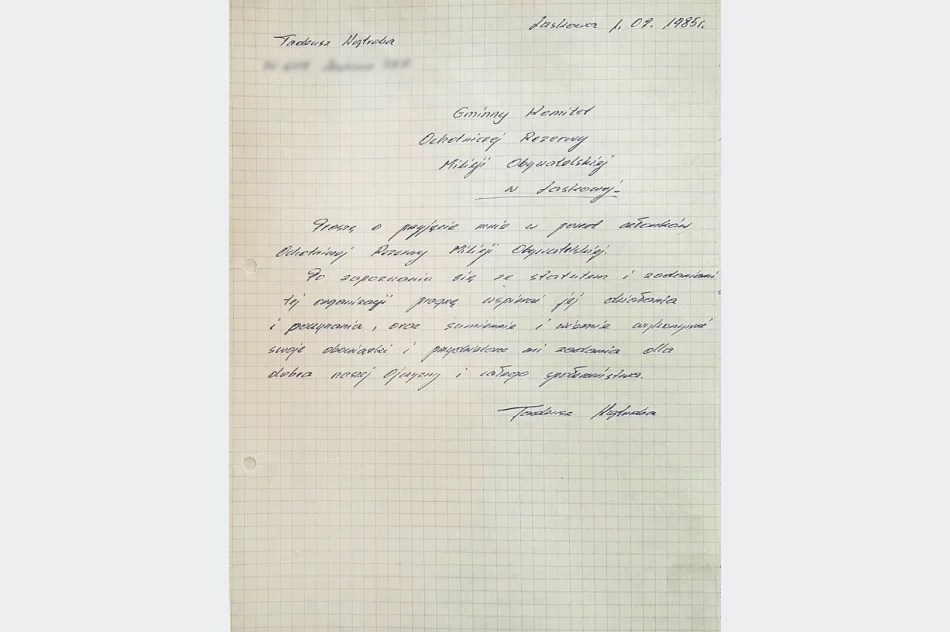 Laskowa 1. 09. 1985r.
Tadeusz Wątroba
Gminny Komitet
Ochotniczej Rezerwy
Milicji Obywatelskiej
w Laskowej.
Proszę o przyjęcie mnie w poczet członków
Ochotniczej Rezerwy Milicji Obywatelskiej.
Po zapoznaniu się ze statutem i zadaniami
tej organizacji pragnę wspierać jej działania
i poczynania, oraz sumiennie i wiernie wykonywać
swoje obowiązki i przydzielone mi zadania dla
dobra naszej Ojczyzny i całego społeczeństwa.
Tadeusz Wątroba